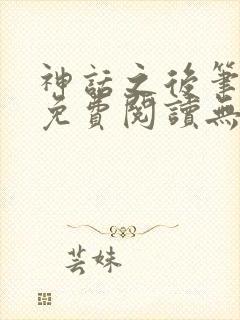 神話之後筆
免費閱讀無
芸妹